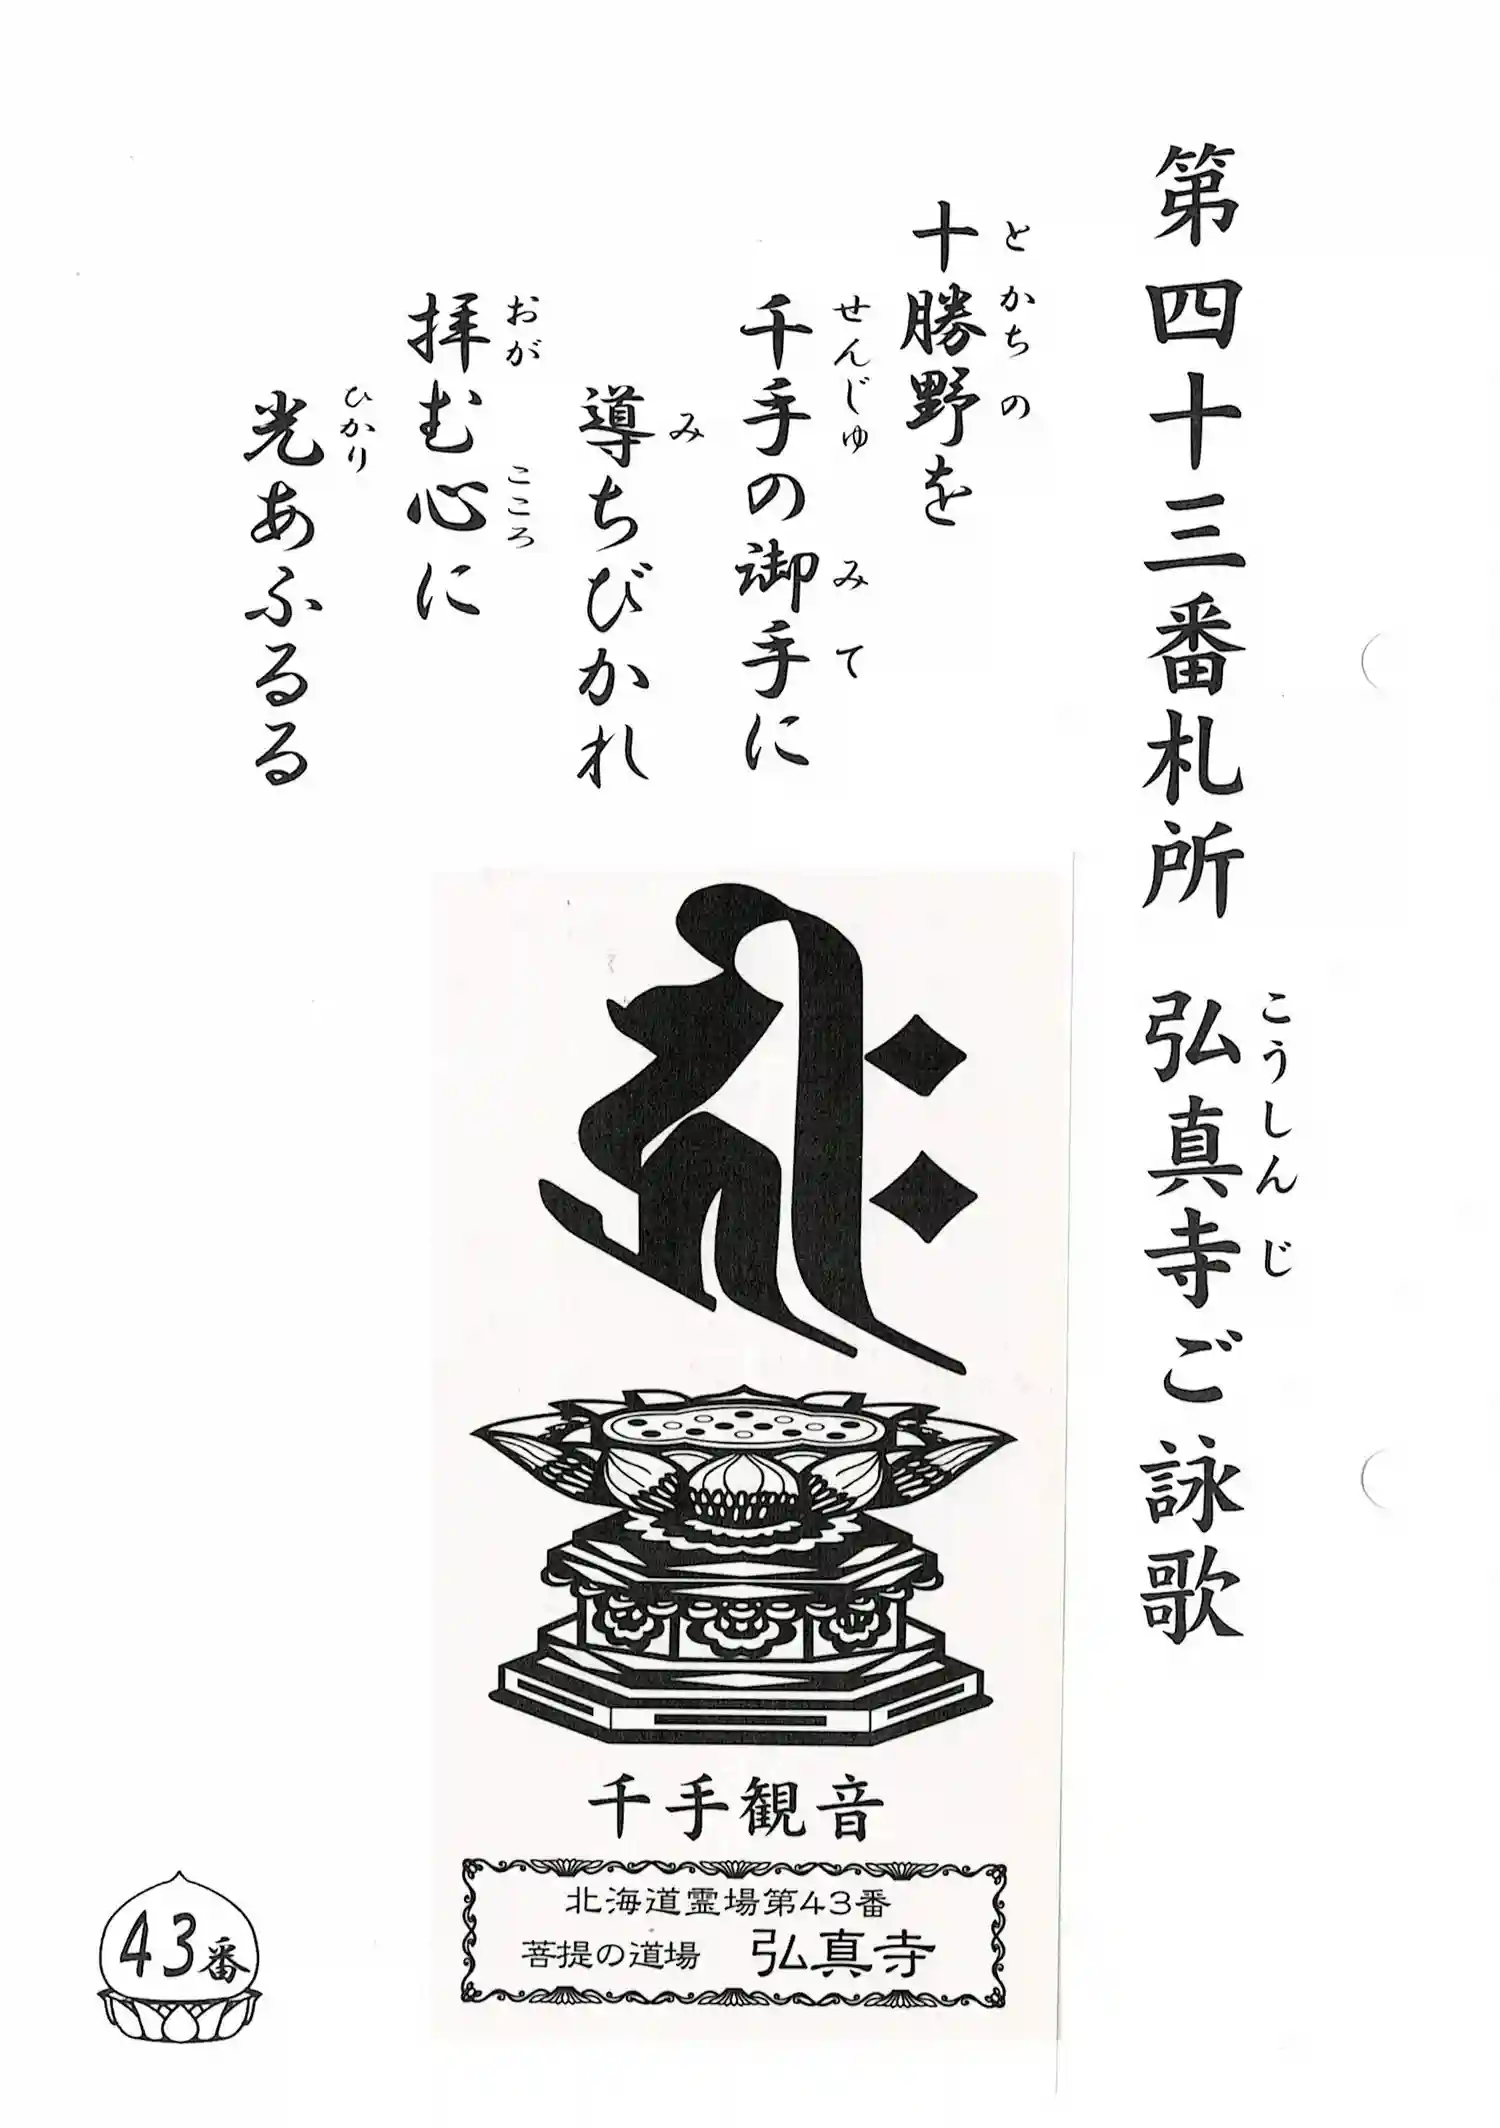 第四十三番札所　弘真寺ご詠歌
こうしんじ
十勝野を
とかちの
千手の御手に
せんじゅ　みて
導ちびかれ
み
拝む心に
おが　こころ
光あふるる
ひかり
千手観音
北海道霊場第43番
菩提の道場　弘真寺
43番